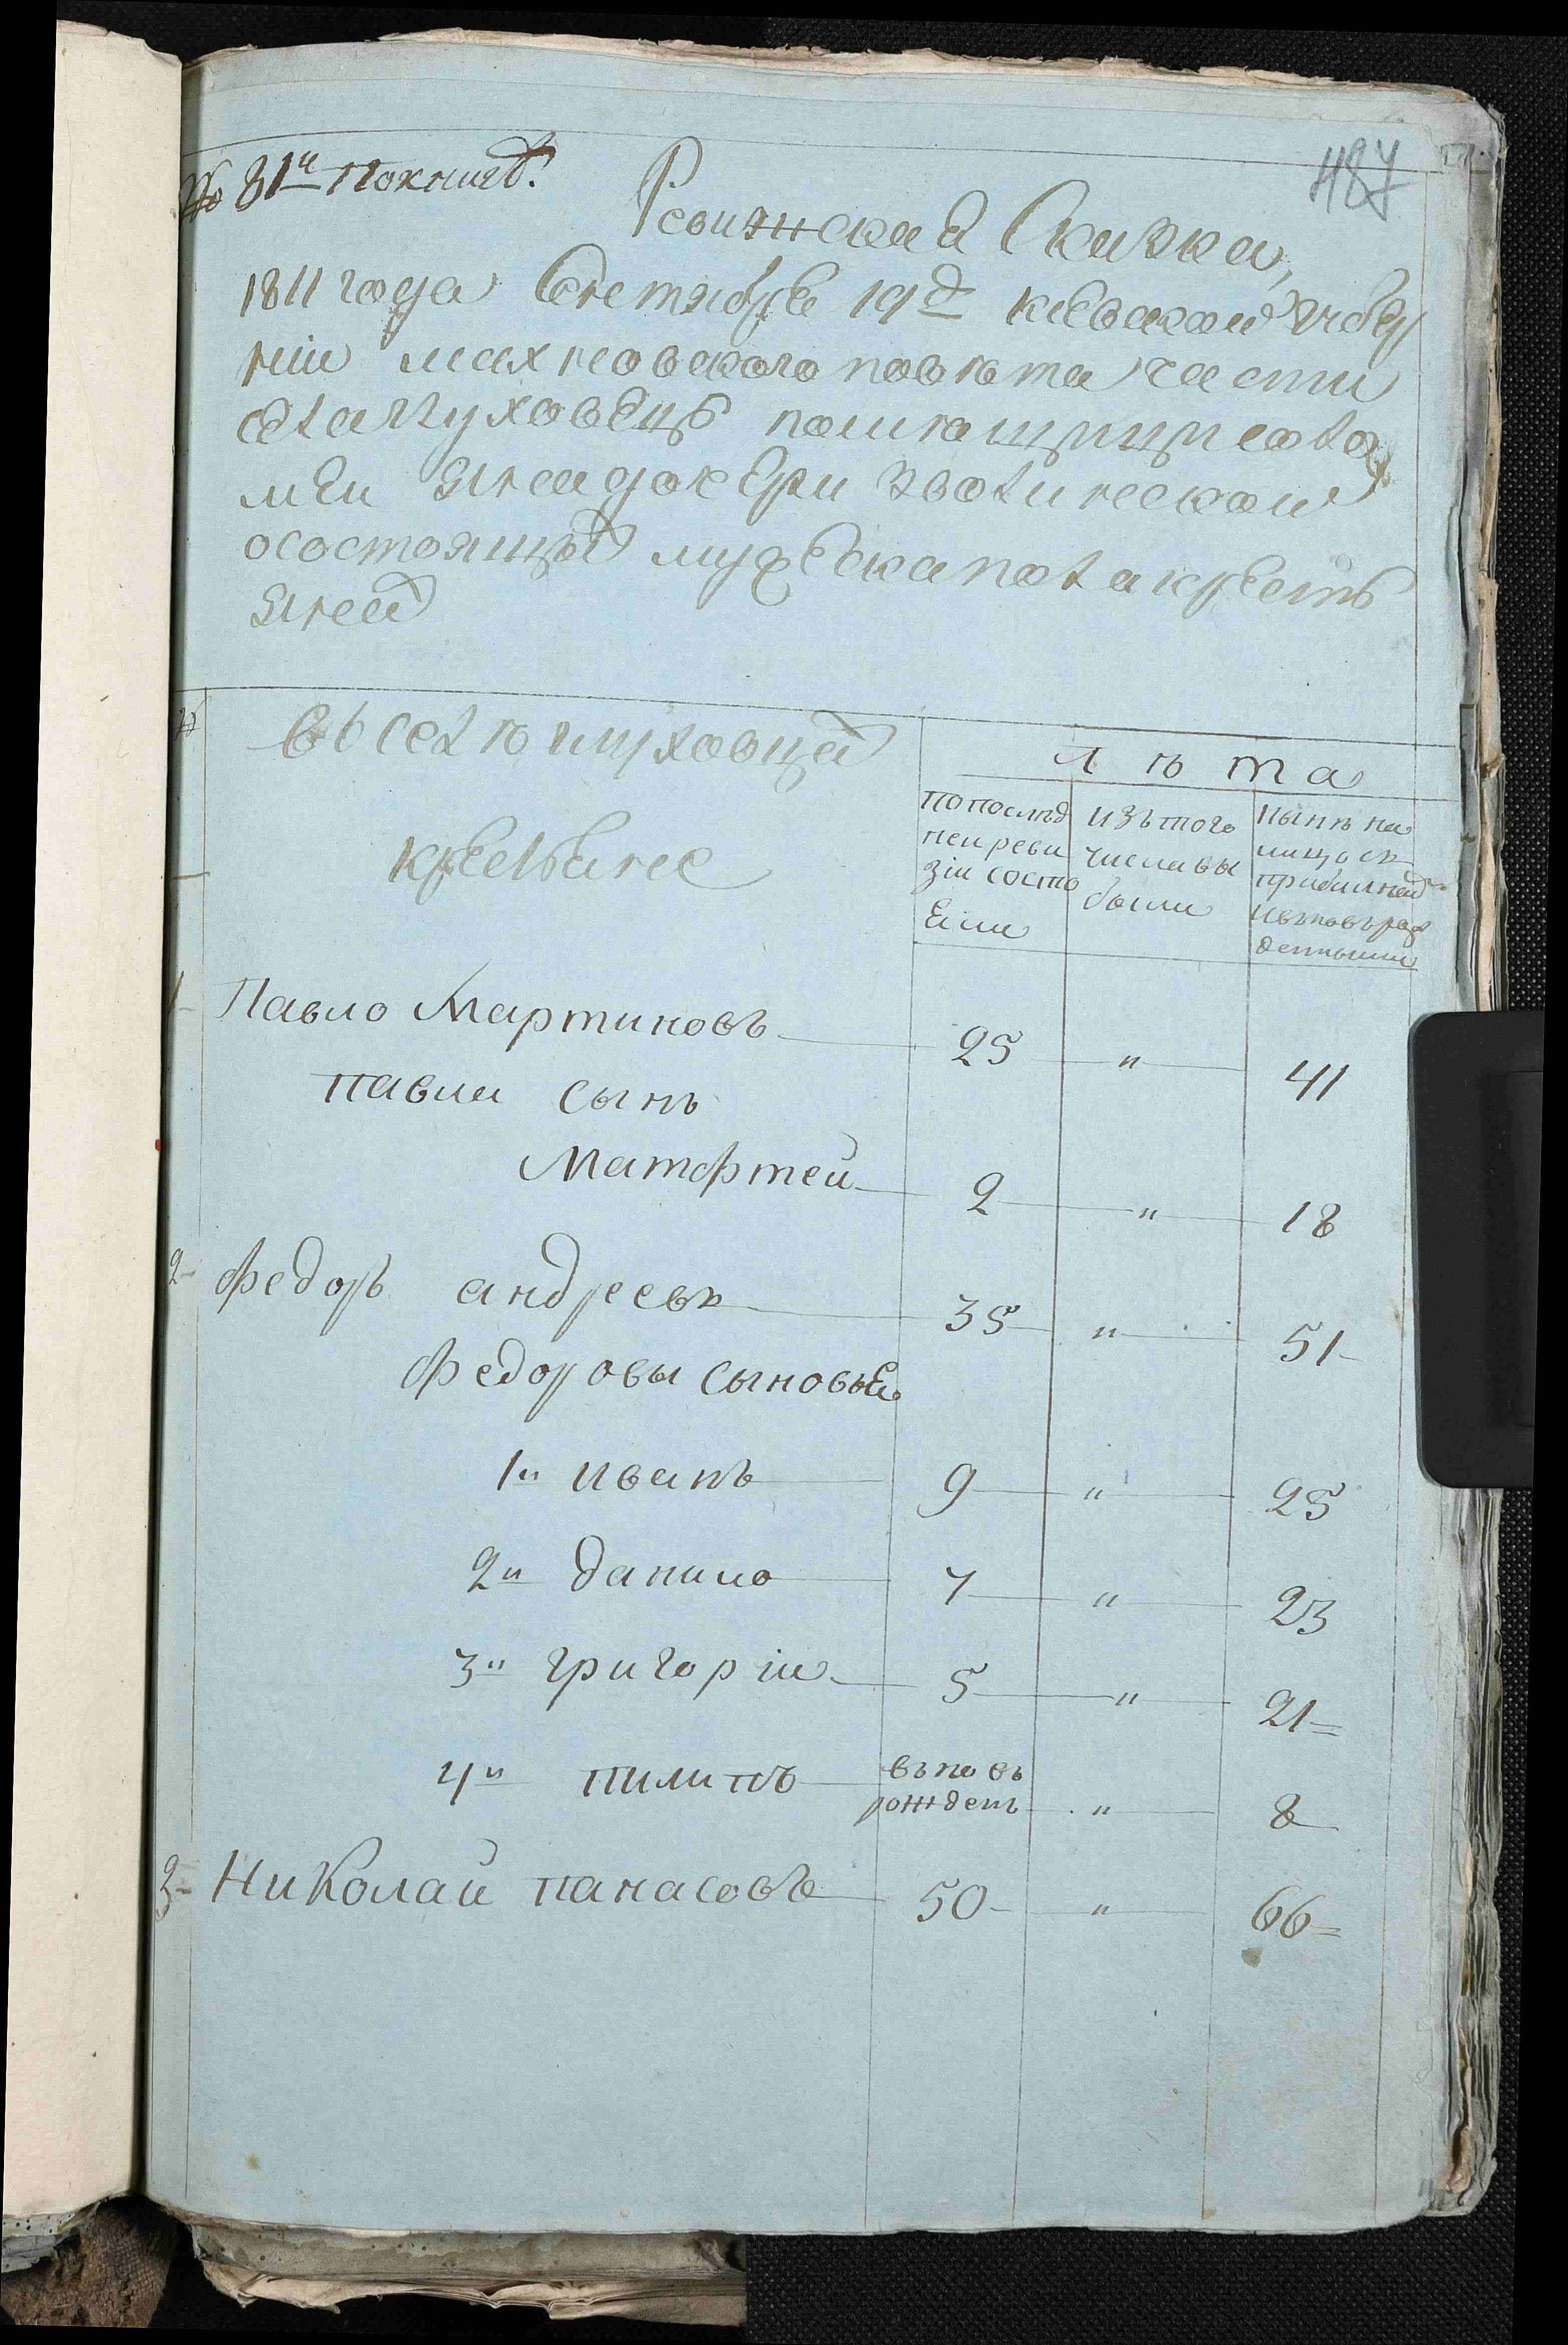 № 31й По книгѣ.
487
Ревизская Сказка,
1811 года Сентября 19д Кіевской Губер
ніи махновского повѣта части
села Глуховецъ помѣщицы сало
меи
осостоящыхъ мужеска пола кресть
янеи
№
въ селѣ глуховцахъ
крестьяне
лѣта
по послѣд
неи реви
зіи состо
яли
изъ того
числа вы
были
Нынѣ на
лицо съ
прибылией
и въновь рож
денными
1 Павло Мартиновъ 25 " 41
павла сынъ
Матфтей 2 " 18
2 федоръ андреевъ 35 " 51
федоровы сыновья
1й иванъ 9 " 25
2й данило 7 " 23
3й григоріи 5 " 21
4й пилипъ въновь
рожденъ " 8
3 Николаи панасовъ 50 " 66